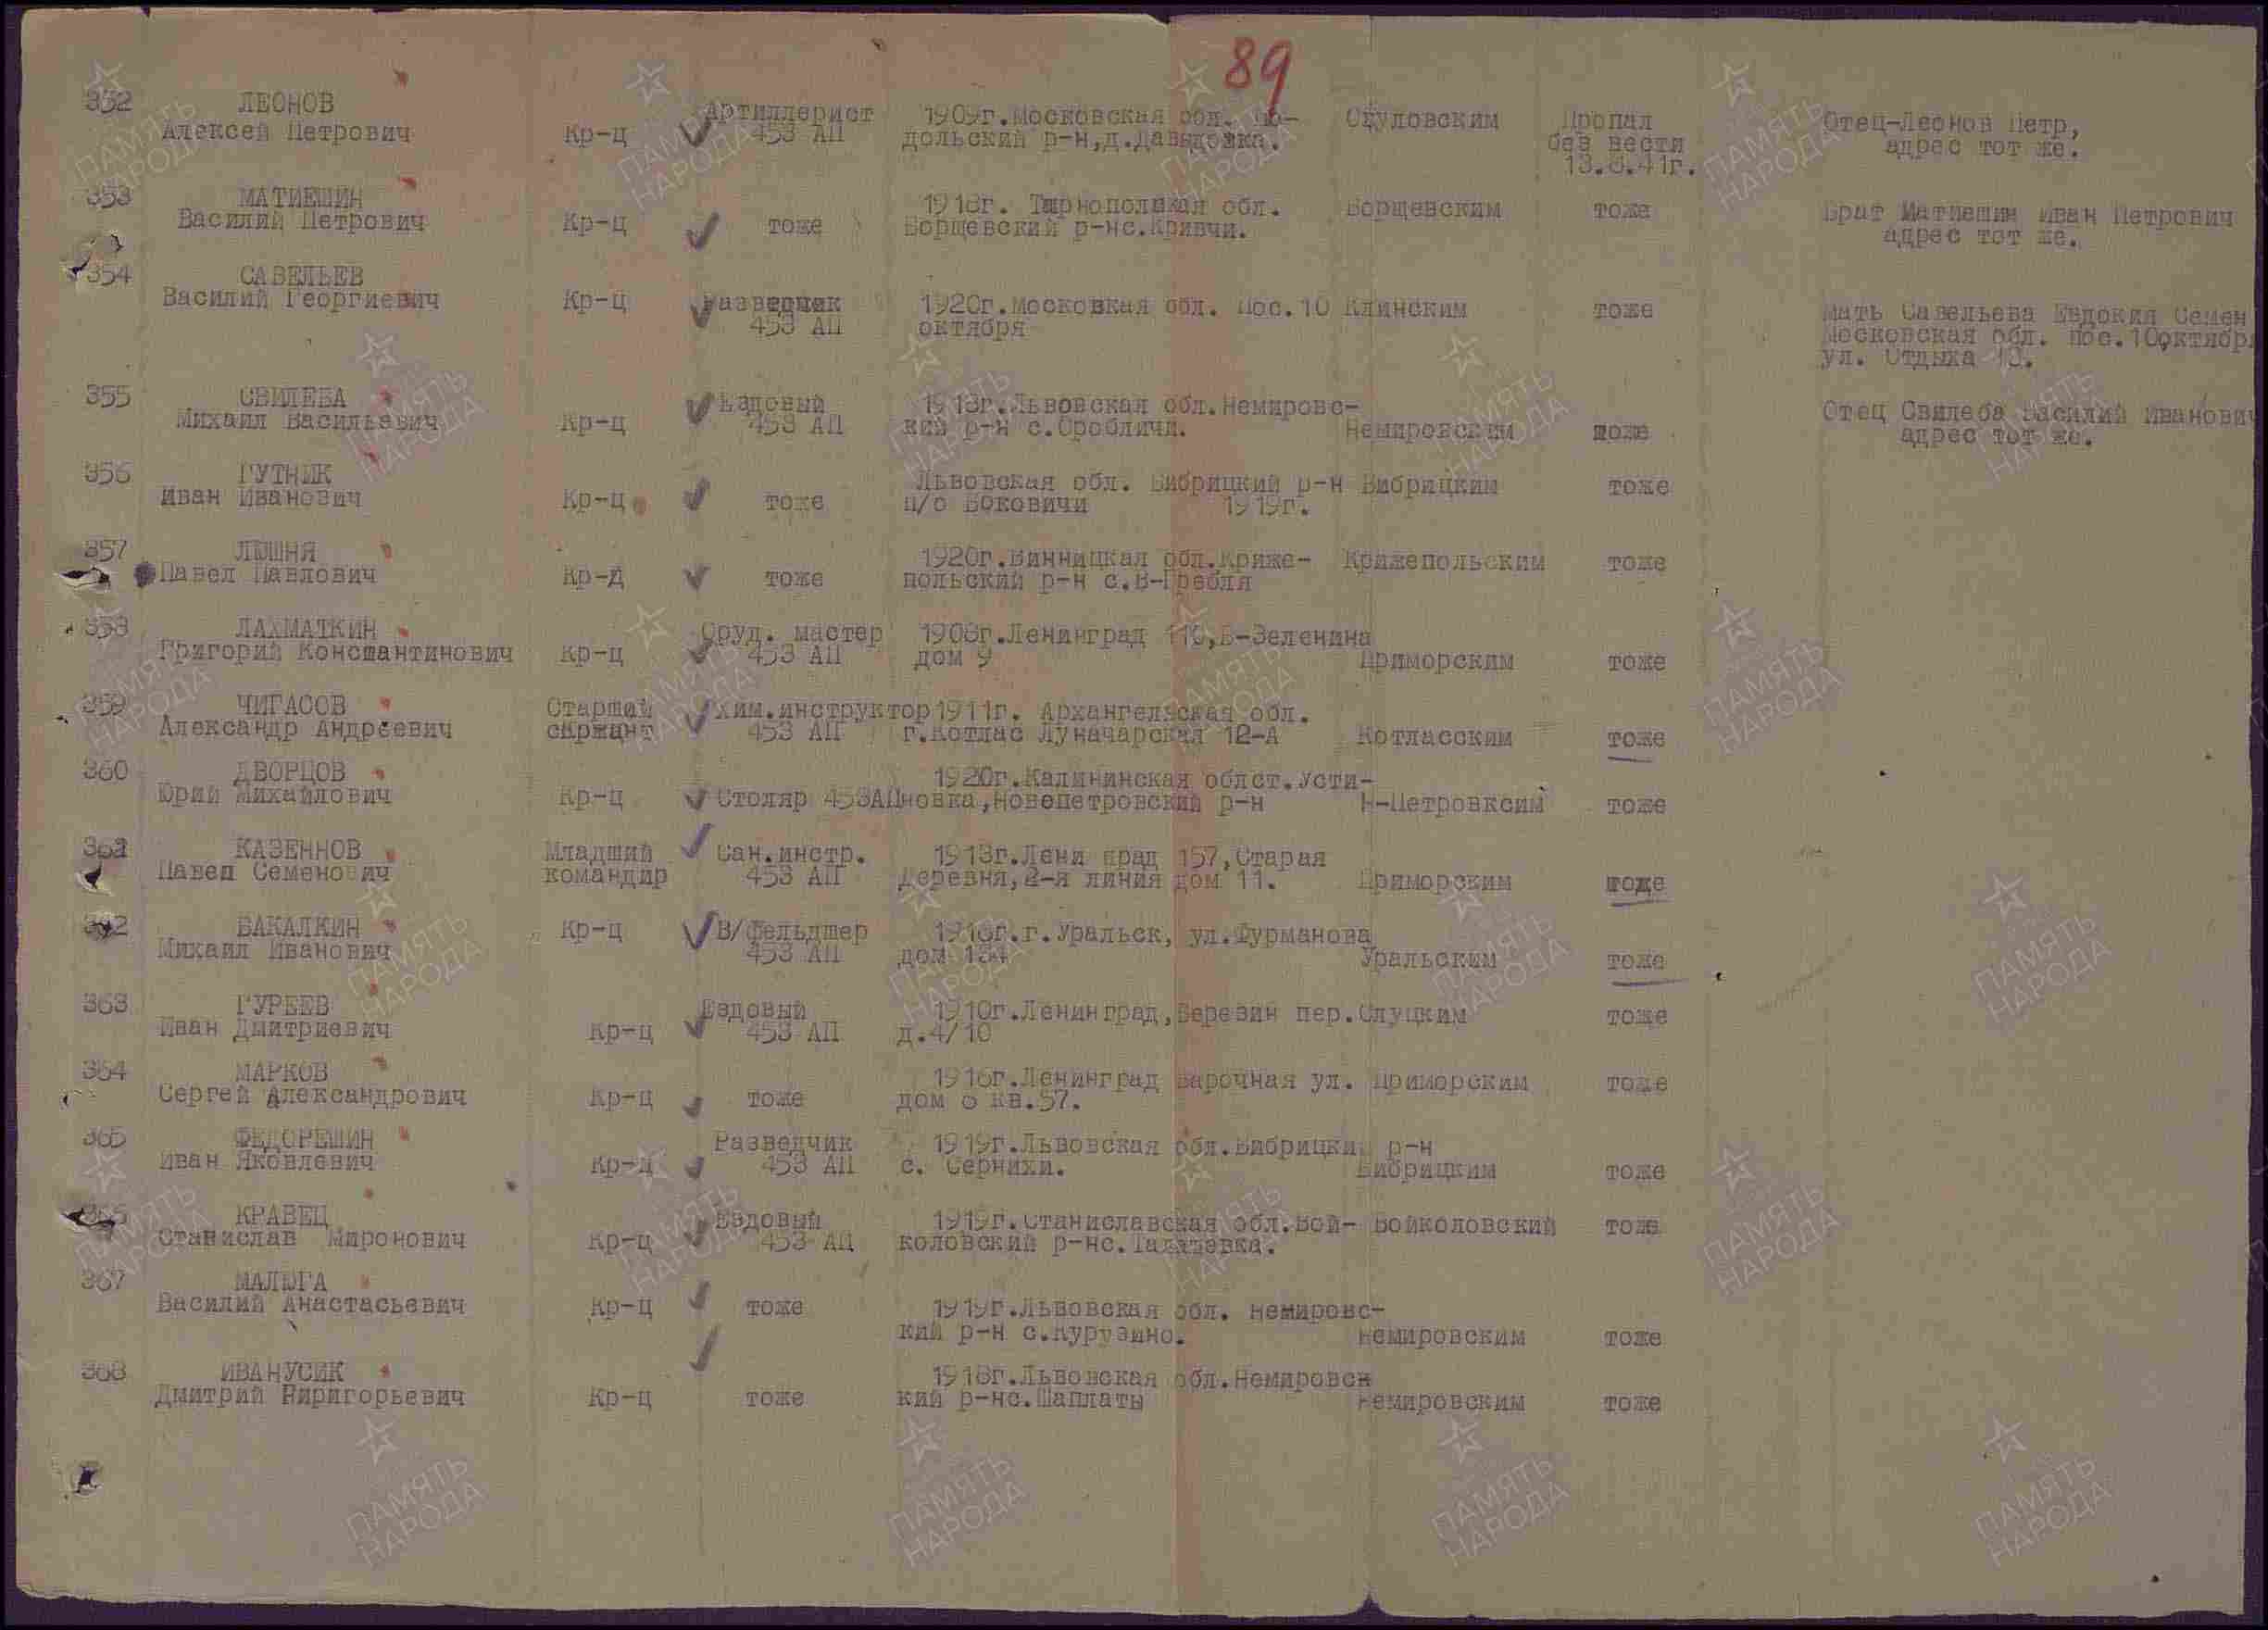 89
352 ЛЕОНОВ
Алексей Петрович Кр-ц Артиллерист 453 АП 1909г.Московская обл. По-
дольский р-н,д.Давыдовка. Пропал
без вести
13.8.41г. Отец-Леонов Петр,
адрес тот же.
353 МАТИЕШИН
Василий Петрович Кр-ц тоже 1918г. Тарнопольская обл.
Борщевский р-нс.Кривчи. Борщевским тоже Брат Матиешин Иван Петрович
адрес тот же.
354 САВЕЛЬЕВ
Василий Георгиевич Кр-ц Разведчик
453 АП 1920г.Московкая обл. Пос.10
октября Клинским тоже Мать Савельева Евдокия Семен
Московская обл. пос.10октябр
ул. Отдыха
355 СВИЛЕБА
Михаил Васильевич Кр-ц Ездовый
453 АП 1918г.Львовская обл.Немировс-
кий р-н с.Оробличи. Немировским тоже Отец Свилеба Василий Иванович
адрес тот же.
356 ГУТНИК
Иван Иванович Кр-ц тоже Львовская обл. Бибрицкий р-н
п/о Боковичи 1919г. Бибрицким тоже
357 ЛЮШНЯ
Павел Павлович Кр-д тоже 1920г.Винницкая обл.Криже-
польский р-н с.В-Гребля Крижепольским тоже
358 ЛАХМАТКИН
Григорий Константинович Кр-ц Оруд. мастер
453 АП 1908г.Ленинград 110,Б-Зеленина
дом 9 Приморским тоже
359 ЧИГАСОВ
Александр Андреевич Старший
сержант Хим.инструктор
453 АП 1911г. Архангельская обл.
г.Котлас Луначарская 12-А Котласским тоже
360 ДВОРЦОВ
Юрий Михайлович Кр-ц Столяр 453АП 1920г.Калининская облст.Усти-
новка,Новопетровский р-н Н-Петровксим тоже
361 КАЗЕННОВ
Павел Семенович Младший
командир Сан.инстр.
453 АП 1913г.Лени град 157,Старая
Деревня,2-я линия дом 11. Приморским тоже
362 БАКАЛКИН
Михаил Иванович Кр-ц В/фельдшер
453 АП 1916г.г.Уральск, ул.Фурманова
дом 134 Уральским тоже
363 ГУРЕЕВ
Иван Дмитриевич Кр-ц Ездовый
453 АП 1910г.Ленинград,Березин пер.
д.4/10 Слуцким тоже
364 МАРКОВ
Сергей Александрович Кр-ц тоже 1916г.Ленинград Барочная ул.
дом 6 кв.57. Приморским тоже
365 ФЕДОРЕШИН
Иван Яковлевич Кр-ц Разведчик
453 АП 1919г.Львовская обл.Бибрицки р-н
с. Серники. Бибрицким тоже
366 КРАВЕЦ
Станислав Миронович Кр-ц Ездовый
453 АП 1919г.Станиславская обл.Вой-
коловский р-нс. Войколовский тоже
367 МАЛЮГА
Василий Анастасьевич Кр-ц тоже 1919г.Львовская обл. Немировс-
кий р-н с.Курузино. Немировским тоже
368 ИВАНУСИК
Дмитрий Ниригорьевич Кр-ц тоже 1918г.Львовская обл.Немировск
кий р-нс.Шаплаты Немировским тоже
ПАМЯТЬ
НАРОДА